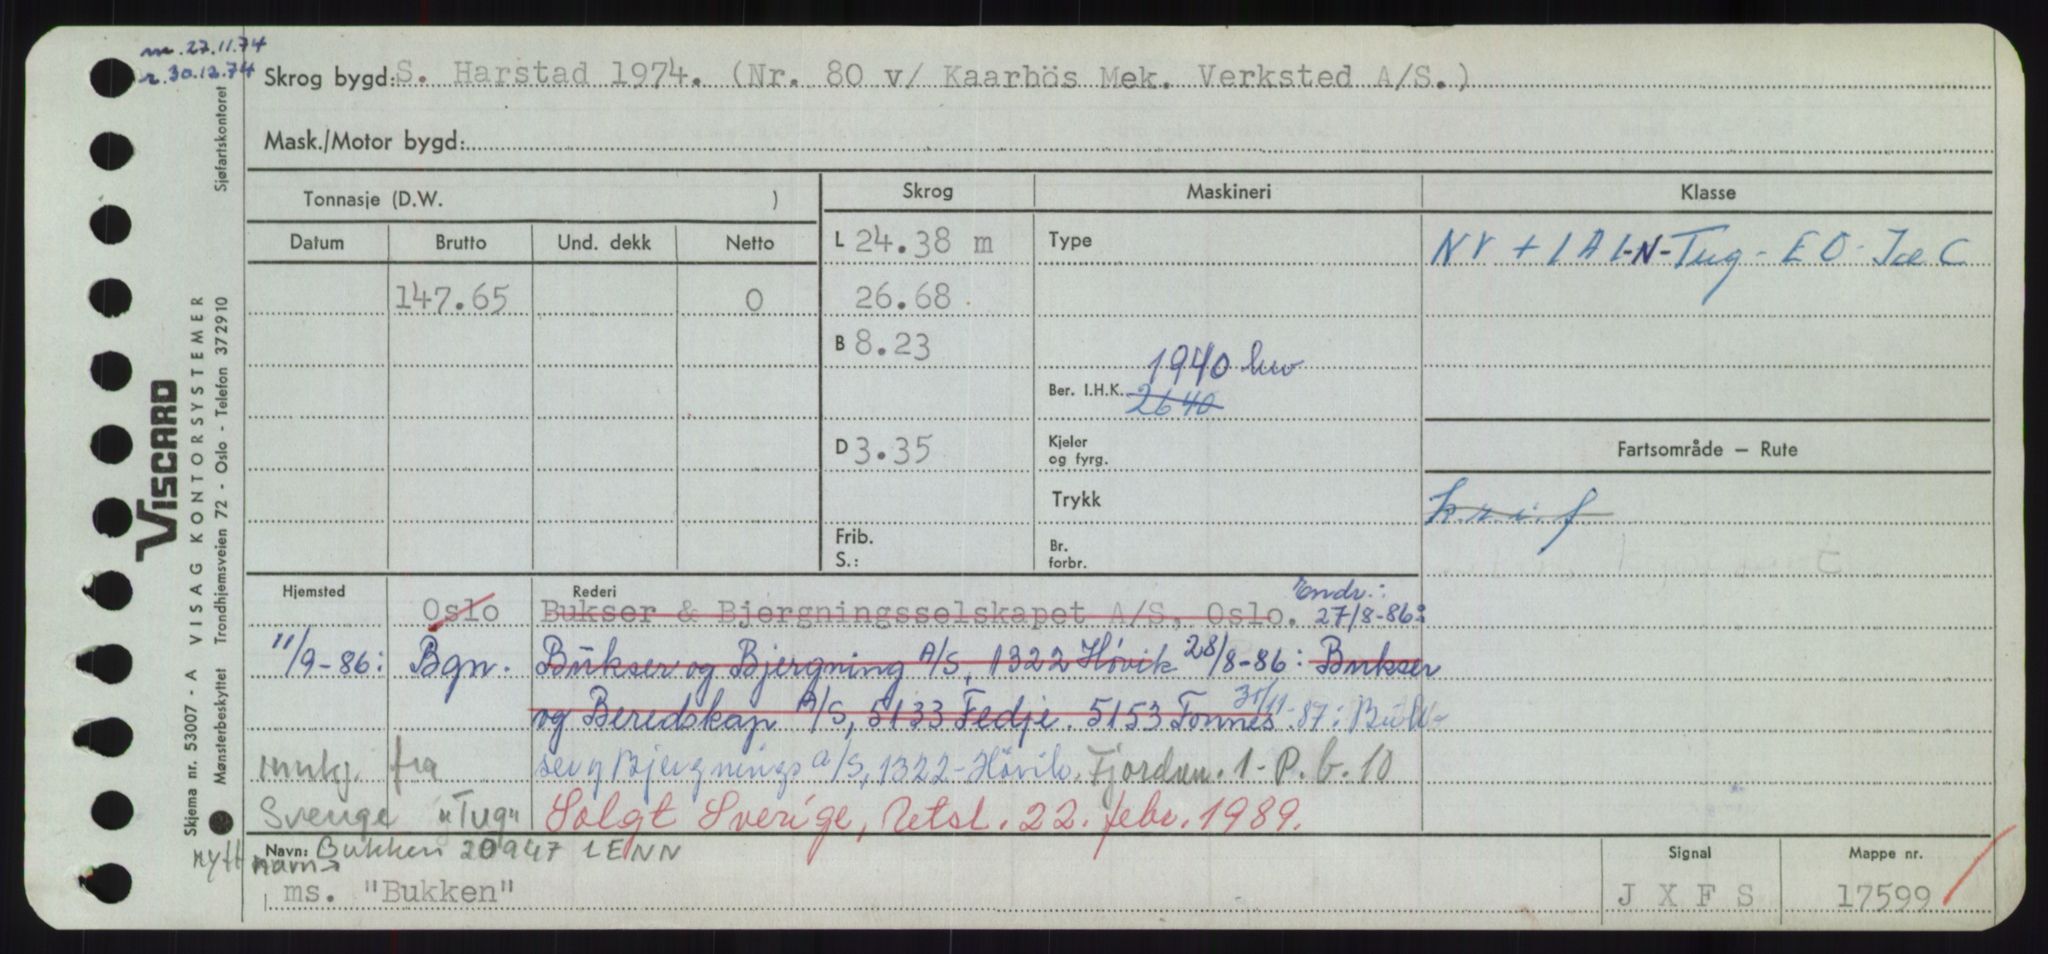 m. 27.11.74
r. 30.12.74
Skrog bygd: S. Harstad 1974. (Nr. 80 v/ Kaarbös Mek. Verksted A/S.)
Mask./Motor bygd:
Tonnasje (D.W. ) Skrog Maskineri Klasse
Datum Brutto Und. dekk Netto L 24.38 m Type NV + 1A1-N-Tug-EO-Ice C
147.65 0 26.68
B 8.23
1940
Ber. I.H.K. 2640
D 3.35 Kjeler og fyrg. Fartsområde — Rute
Trykk k.r.i.f
Frib. S.: Br. forbr.
Hjemsted Rederi Endr.:
Oslo Bukser & Bjergningsselskapet A/S, Oslo. 27/8-86:
11/9-86: Bgn. Bukser og Bjergning A/S, 1322 Høvik 28/8-86: Bukser
og Beredskap A/S, 5133 Fedje. 5153 Fonnes 87: Buk-
ser og Bjergnings A/S, 1322-Høvik. Fjordan. 1- P.b. 10
innkj. fra
Sverige "Tug" Solgt Sverige, 22. febr. 1989.
nytt navn→
Navn: Bukken 20947 LENN Signal Mappe nr.
ms. "Bukken" J X F S 17599
VISCARD
VISAG KONTORSYSTEMER
Skjema nr. 53007 - A
Mønsterbeskyttet Trondhjemsveien 72 - Oslo - Telefon 372910 Sjøfartskontoret